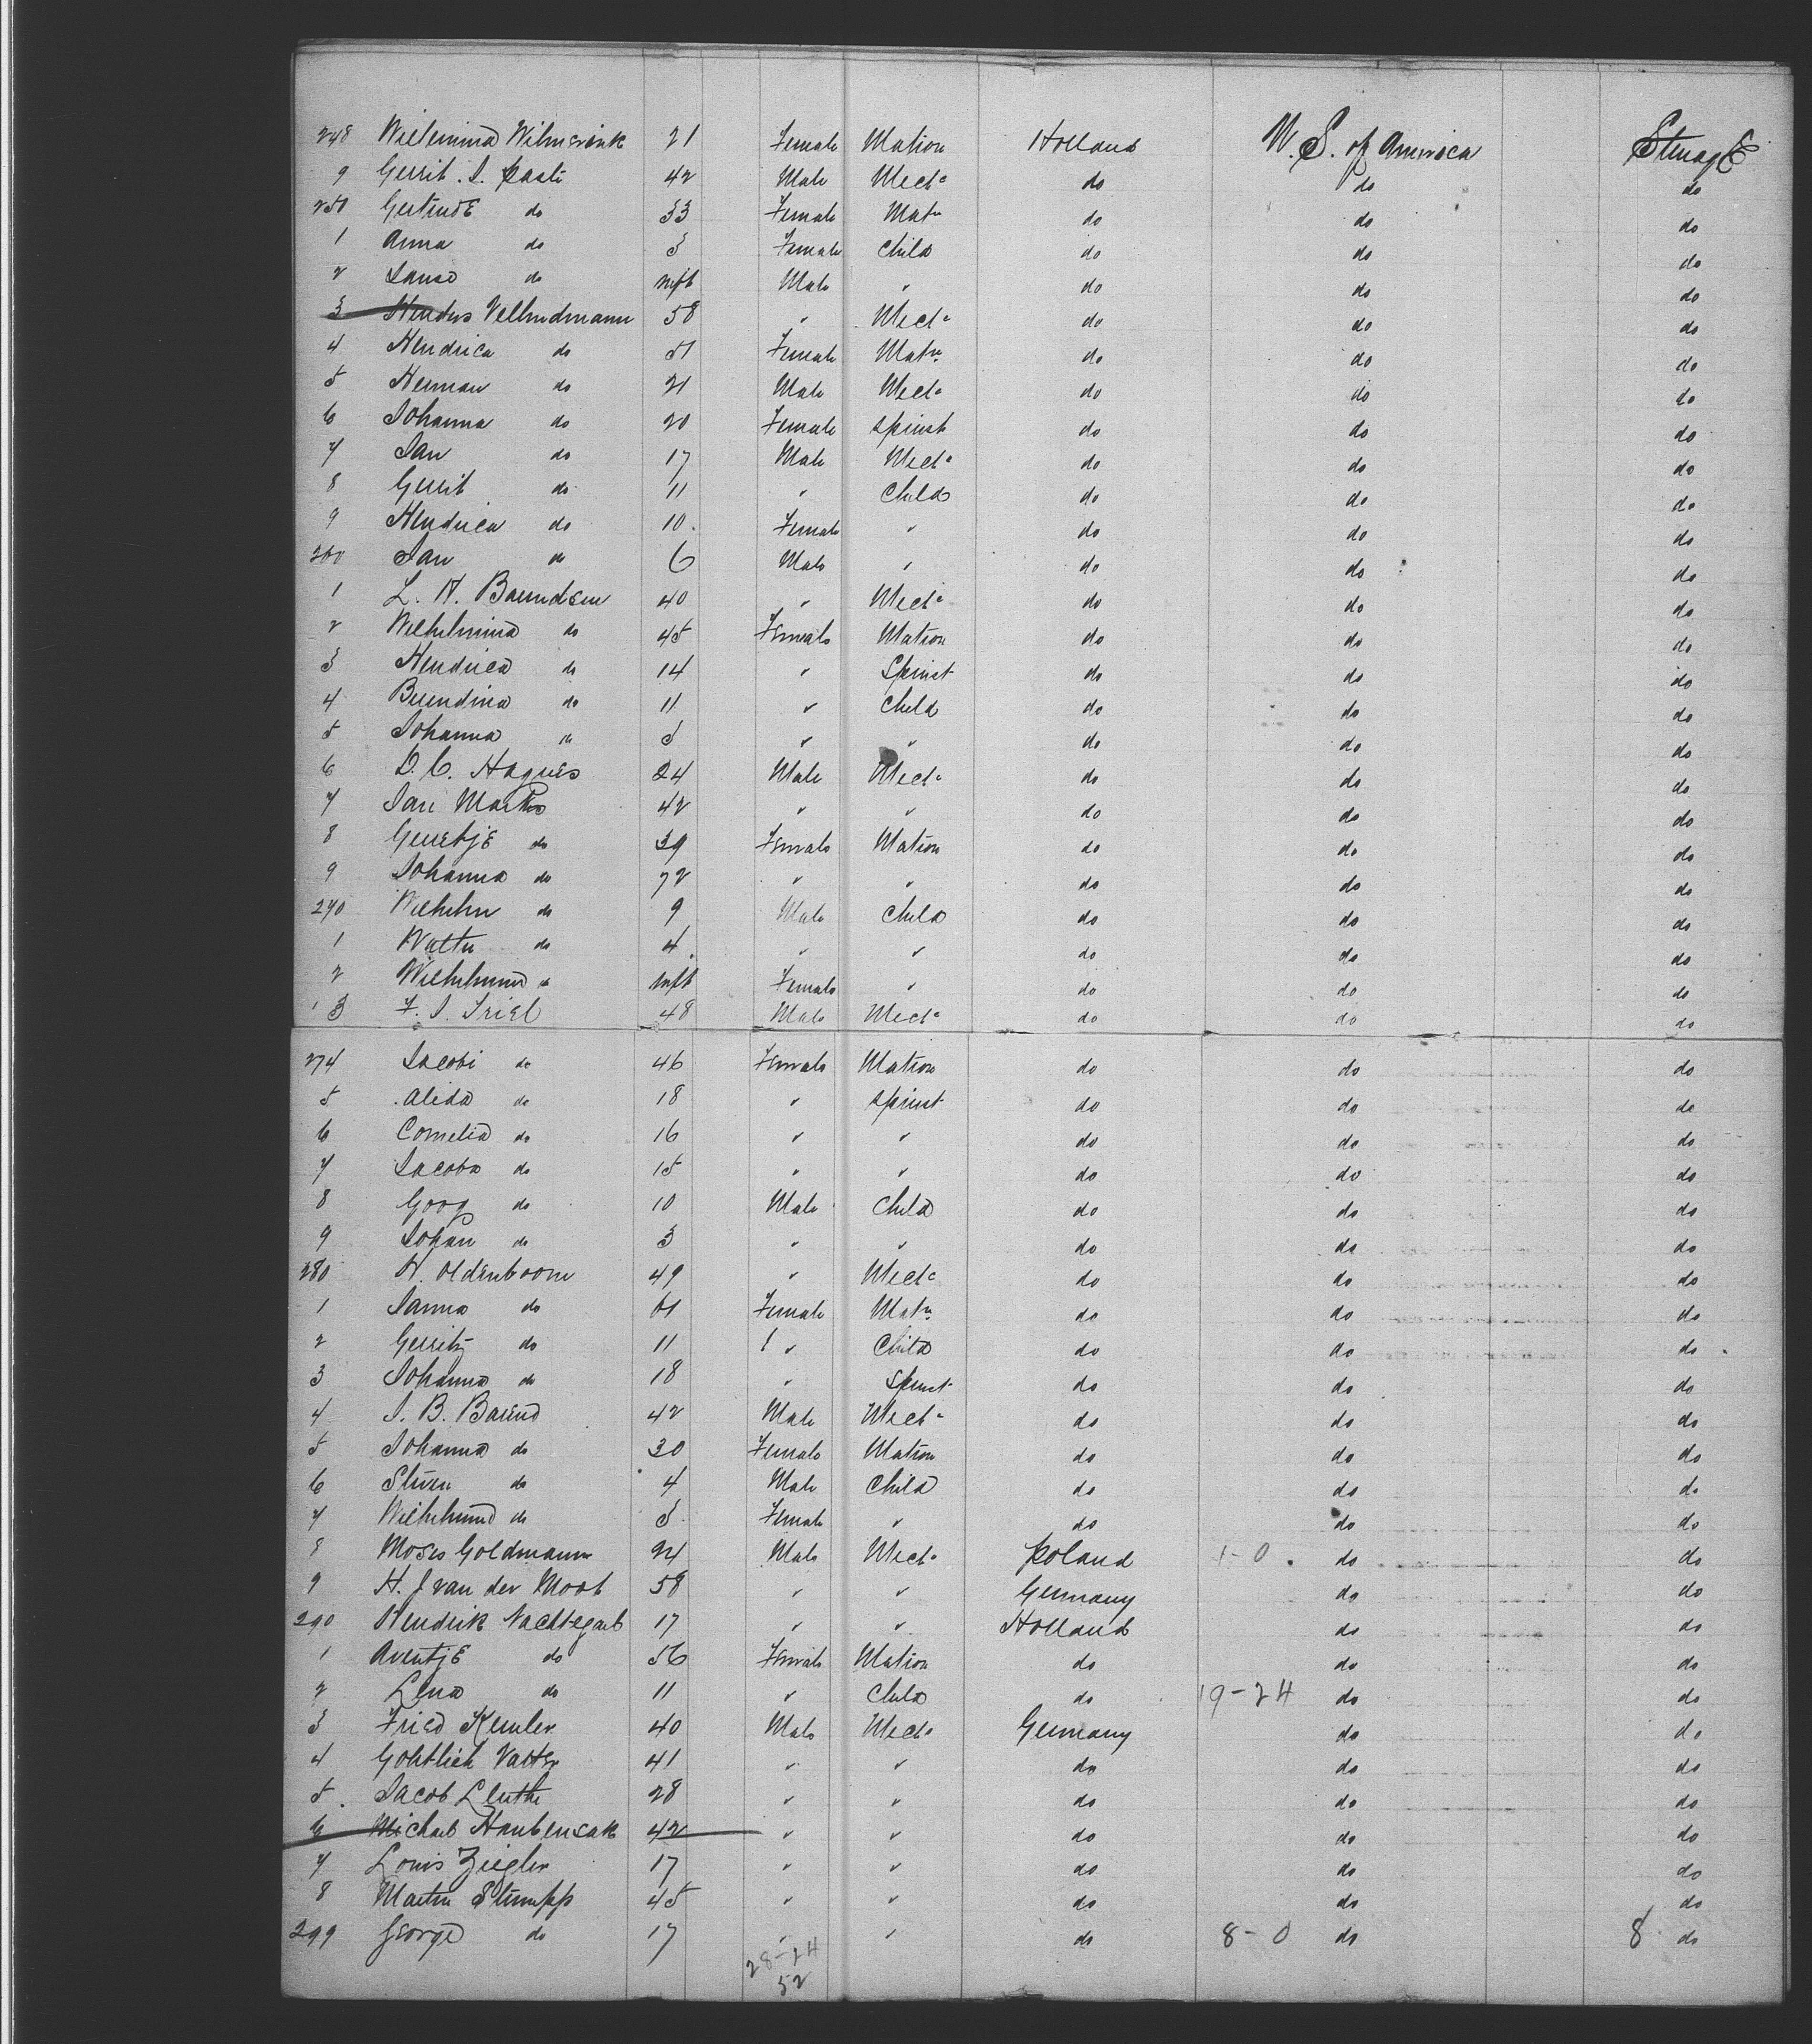 248 Wielemina Wilmerink 21 Female Matron Holland U. S. of America Steerage
9 Gerrit. J. Kaste 42 Male Mecte do do do
250 Gertrude do 33 Female Matn do do do
1 Anna do 3 Female Child do do do
2 do inft Male " do do do
3 Hendrs Velhudmann 58 " Mecte do do do
4 Hendrica do 51 Female Matn do do do
5 Herman do 21 Male Mecte do do do
6 Johanna do 20 Female Spinst do do do
7 Jan do 17 Male Mecte do do do
8 Gerrit do 11 " Child do do do
9 Hendrica do 10. Female " do do do
260 Jan do 6 Male " do do do
1 L. H. Barendsen 40 " Mecte do do do
2 Wilhelmina do 45 Female Matron do do do
3 Hendrica do 14 " Spinst do do do
4 Berendina do 11 " Child do do do
5 Johanna do 3 " " do do do
6 D. C. Hagues 24 Male Mecte do do do
7 Jan Marks 42 " " do do do
8 Geertje do 39 Female Matron do do do
9 Johanna do 72 " " do do do
270 Wilhelm do 9 Male Child do do do
1 Walter do 4 " " do do do
2 Wilhelmina do inft Female " do do do
3 F. J. Friel 48 Male Mecte do do do
274 Jacobi do 46 Female Matron do do do
5 Alida do 18 " Spinst do do do
6 Cornelia do 16 " " do do do
7 Jacoba do 15 " " do do do
8 Goog do 10 Male Child do do do
9 Johan do 3 " " do do do
280 H. Oldenboom 49 " Mecte do do do
1 Janna do 61 Female Matn do do do
2 Gerritz do 11 " Child do do do
3 Johanna do 18 " Spinst do do do
4 J. B. Barend 42 Male Mecte do do do
5 Johanna do 30 Female Matron do do do
6 Steven do 4 Male Child do do do
7 Wilhelmina do 3 Female " do do do
8 Moses Goldmann 24 Male Mecte Poland 1-0 do do
9 H. J van der Moot 58 " " Germany do do
290 Hendrik Nachtegael 17 " " Holland do do
1 Aventje do 56 Female Matron do do do
2 Lena do 11 " Child do 19-24 do do
3 Fried Kemler 40 Male Mecte Germany do do
4 Gohtlieb Vatter 41 " " do do do
5 Jacob Leuthe 28 " " do do do
6 Michael Haubensak 42 " " do do do
7 Louis Ziegler 17 " " do do do
8 Martin Stumpp 45 " " do do do
299 George do 17 " " do 8-0 do 8 do
28-24
52